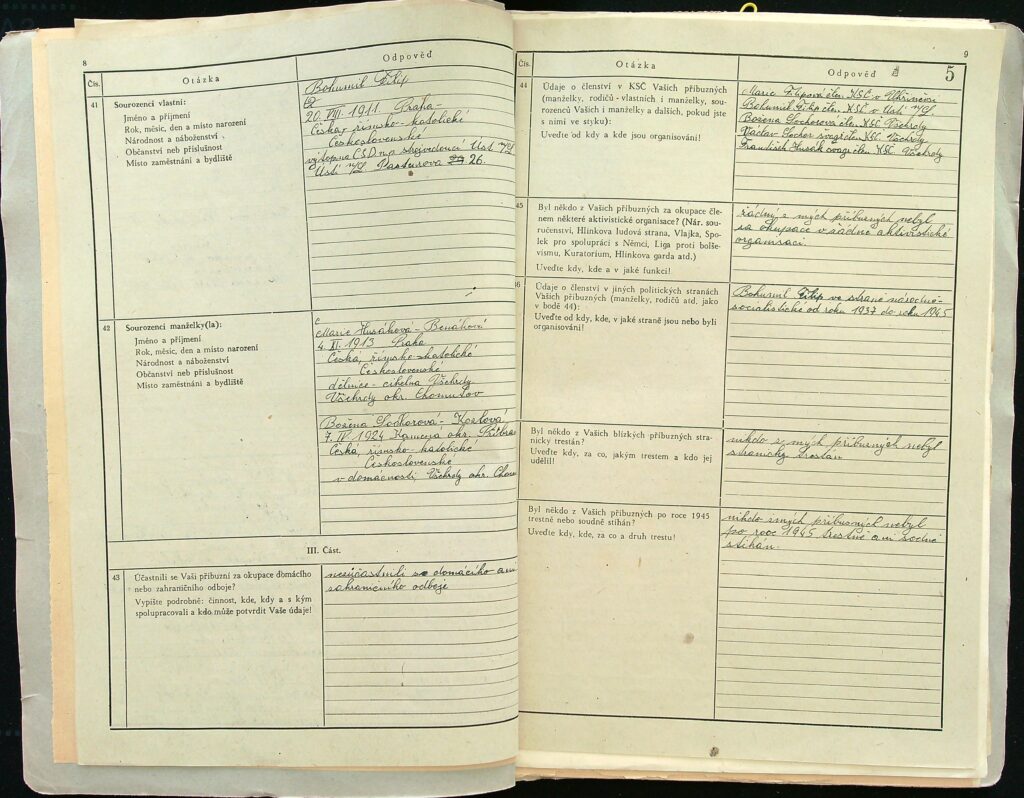 8
Čís.
Otázka
Odpověď
41
Sourozenci vlastní:
Jméno a příjmení
Rok, měsíc, den a místo narození
Národnost a náboženství
Občanství neb příslušnost
Místo zaměstnání a bydliště
Bohumil Filip
20. VIII. 1911. Praha-
Česká, římsko-katolické
Československé
výtopna ČSD na střejedoucí Ústí n/L
Ústí n/L. Pasteurova 26.
42
Sourozenci manželky(la):
Jméno a příjmení
Rok, měsíc, den a místo narození
Národnost a náboženství
Občanství neb příslušnost
Místo zaměstnání a bydliště
Marie Husáková - Benáková
4. XI. 1913 Praha
Česká, římsko-katolické
Československé
dělnice - cihelna Všehrdy
Všehrdy okr. Chomutov
Božena Sochorová - Kozlová
7. IV. 1924 Kamena okr. Příbram
Česká, římsko-katolické
Československé
v domácnosti, Všehrdy okr. Chom
III. Část.
43
Účastnili se Vaši příbuzní za okupace domácího
nebo zahraničního odboje?
Vypište podrobně: činnost, kde, kdy a s kým
spolupracovali a kdo může potvrdit Vaše údaje!
neúčastnili se domácího ani
zahraničního odboje
9
5
Čís.
Otázka
Odpověď
44
Údaje o členství v KSČ Vašich příbuzných
(manželky, rodičů - vlastních i manželky, sourozenců
Vašich i manželky a dalších, pokud jste
s nimi ve styku):
Uveďte od kdy a kde jsou organisováni!
Marie Filipová člen KSČ v Uhříněvsi
Bohumil Filip člen KSČ v Ústí n/L.
Božena Sochorová člen KSČ Všehrdy
Václav Sochor švagr člen KSČ Všehrdy
František Husák švagr člen KSČ Všehrdy
45
Byl někdo z Vašich příbuzných za okupace členem
některé aktivistické organisace? (Nár. souručenství,
Hlinkova ludová strana, Vlajka, Spolek
pro spolupráci s Němci, Liga proti bolševismu,
Kuratorium, Hlinkova garda atd.)
Uveďte kdy, kde a v jaké funkci!
žádný z mých příbuzných nebyl
za okupace v žádné aktivistické
organisaci.
46
Údaje o členství v jiných politických stranách
Vašich příbuzných (manželky, rodičů atd. jako
v bodě 44):
Uveďte od kdy, kde, v jaké straně jsou nebo byli
organisováni!
Bohumil Filip ve straně národně-
socialistické od roku 1937 do roku 1945
Byl někdo z Vašich blízkých příbuzných stranicky
trestán?
Uveďte kdy, za co, jakým trestem a kdo jej
udělil!
nikdo z mých příbuzných nebyl
stranicky trestán
Byl někdo z Vašich příbuzných po roce 1945
trestně nebo soudně stíhán?
Uveďte kdy, kde, za co a druh trestu!
nikdo z mých příbuzných nebyl
po roce 1945 trestně ani soudně
stíhán.